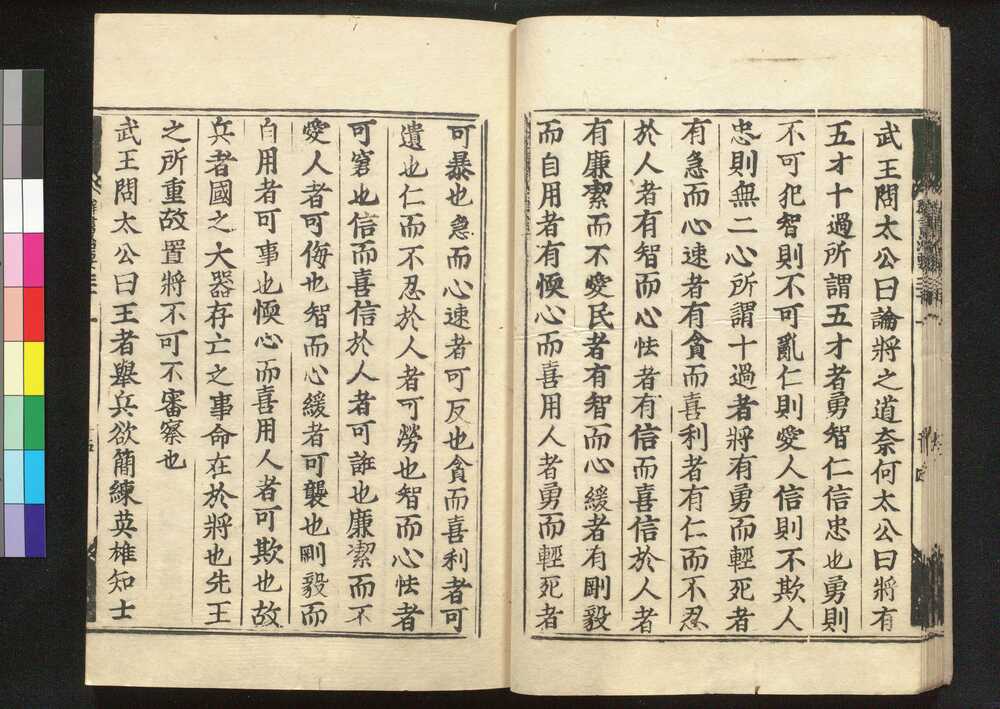 武王問太公曰論將之道奈何太公曰將有
五才十過所謂五才者勇智仁信忠也勇則
不可犯智則不可亂仁則愛人信則不欺人
忠則無二心所謂十過者將有勇而輕死者
有急而心速者有貪而喜利者有仁而不忍
於人者有智而心怯者有信而喜信於人者
有廉潔而不愛民者有智而心緩者有剛毅
而自用者有愞心而喜用人者勇而輕死者
可暴也急而心速者可反也貪而喜利者可
遺也仁而不忍於人者可勞也智而心怯者
可窘也信而喜信於人者可誰也廉潔而不
愛人者可侮也智而心緩者可襲也剛毅而
自用者可事也愞心而喜用人者可欺也故
兵者國之大器存亡之事命在於將也先王
之所重故置將不可不審察也
武王問太公曰王者舉兵欲簡練英雄知士